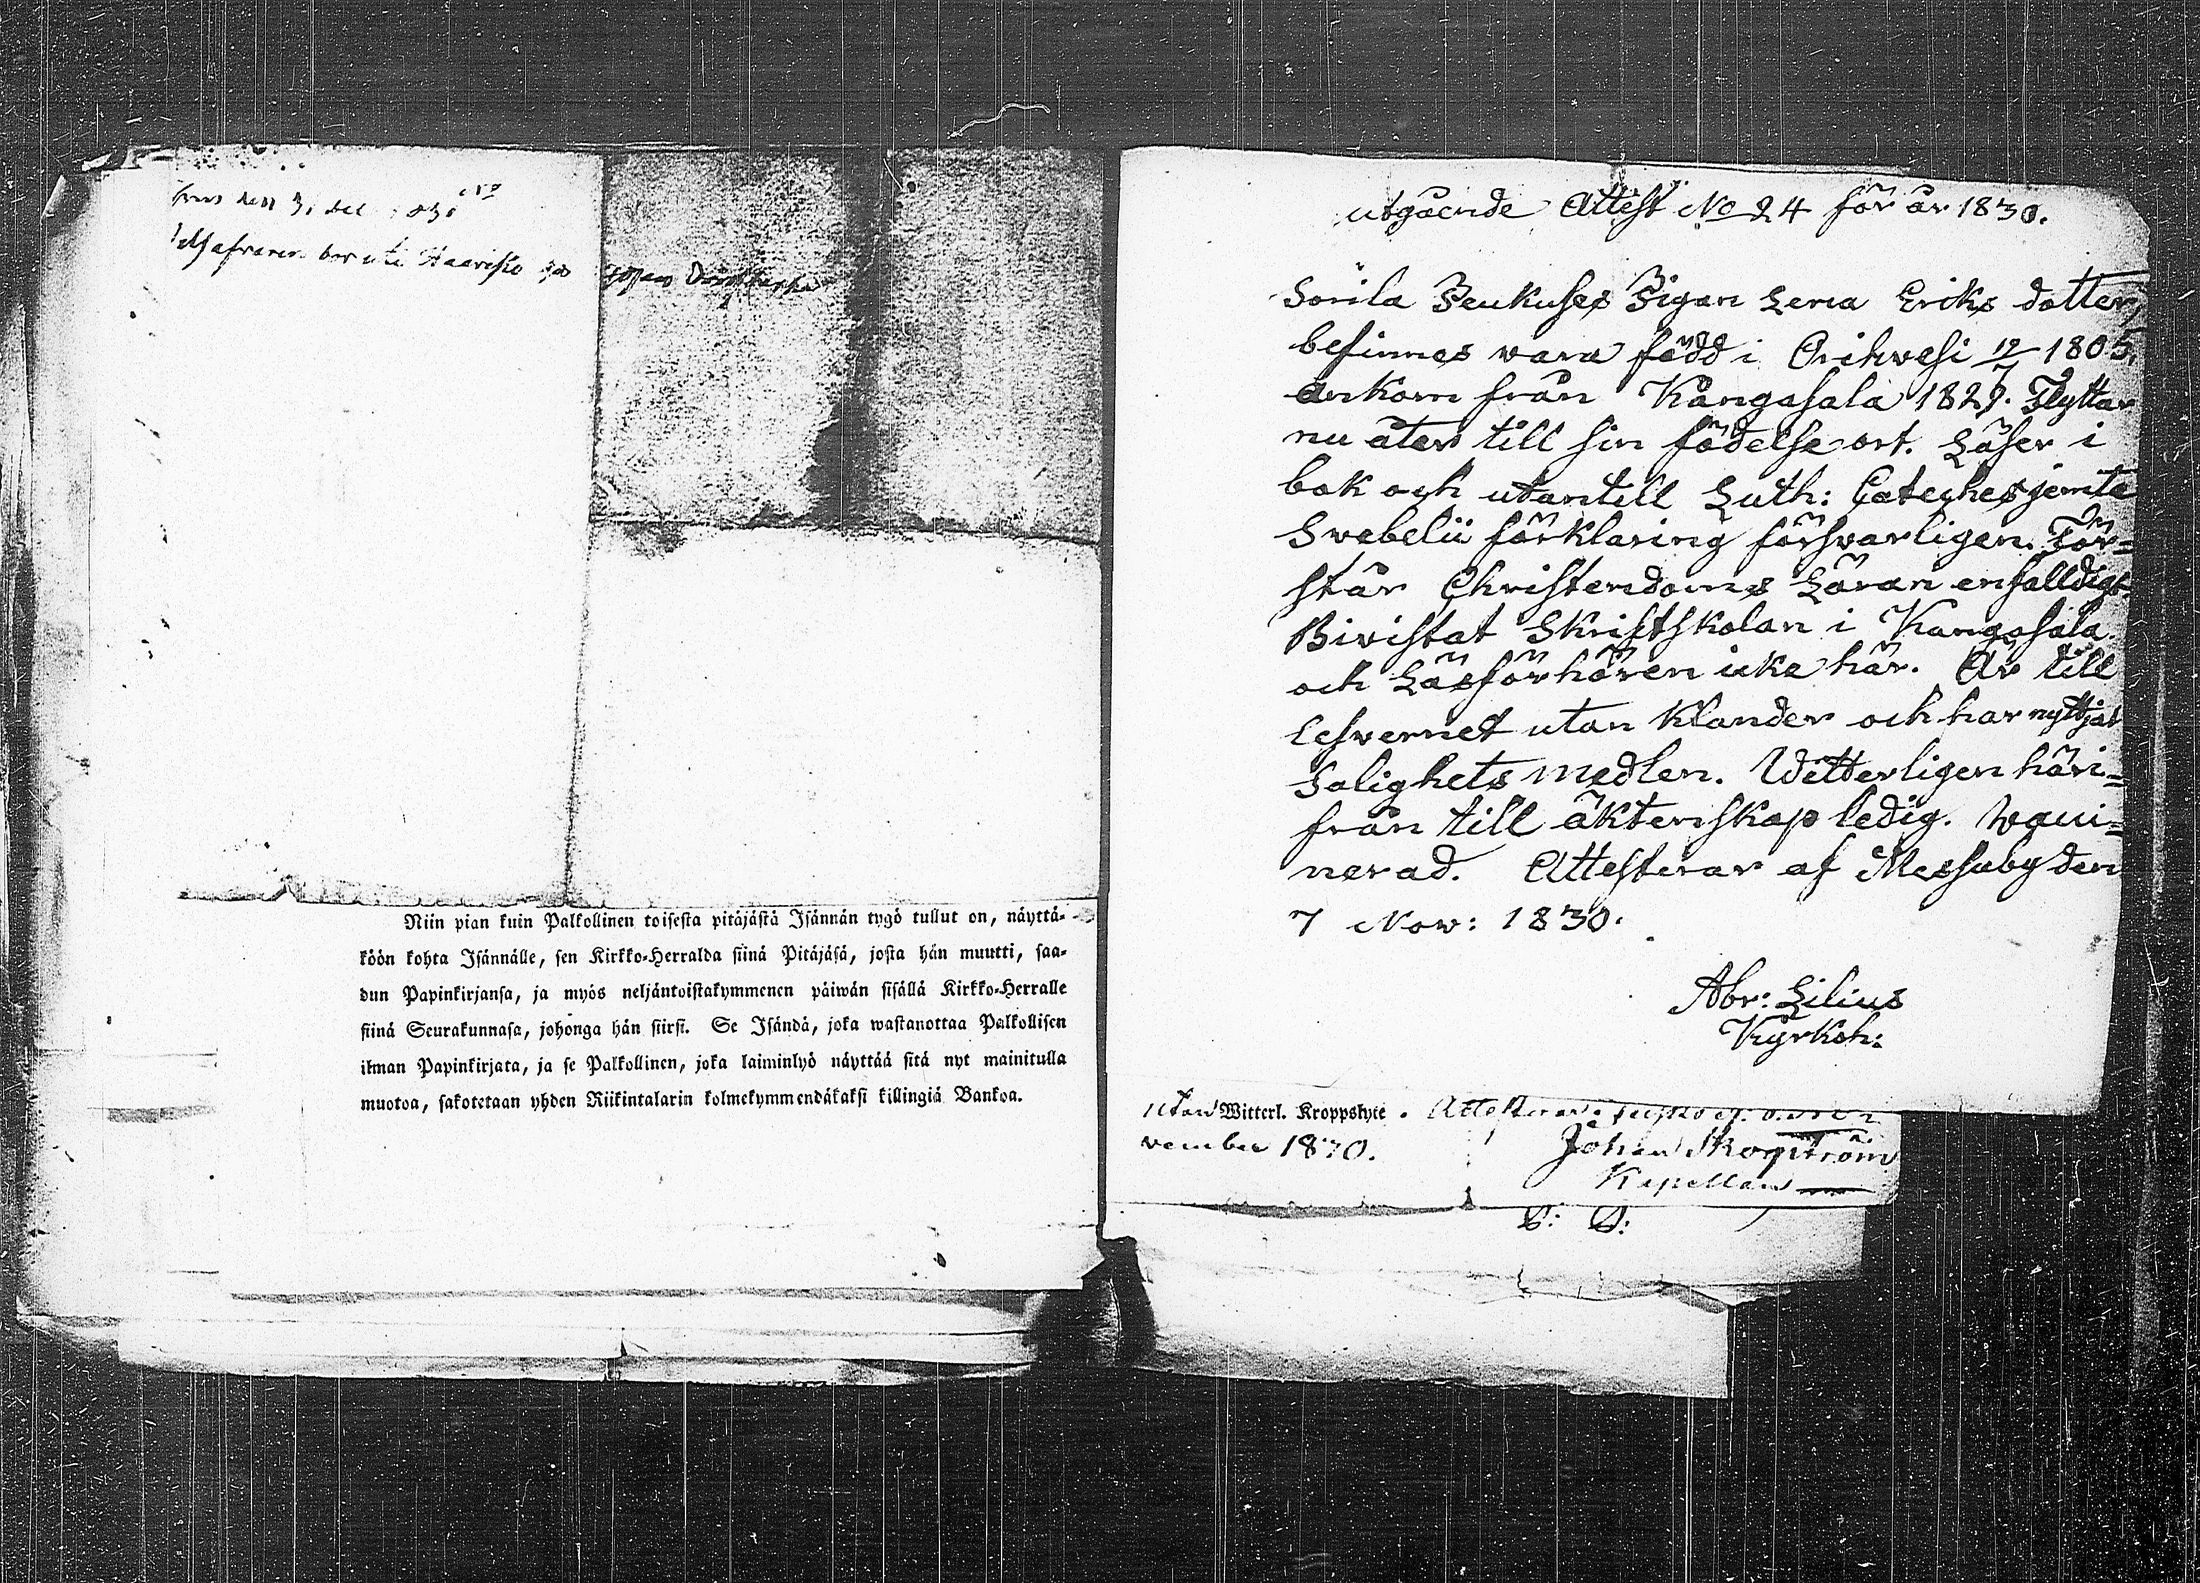 Niin pian kuin Palkollinen toisesta pitäjästä Isännän tygö tullut on, näyttä-
köön kohta Isännälle, sen Kirkko-Herralda siinä Pitäjäsä, josta hän muutti, saa-
dun Papinkirjansa, ja myös neljäntoistakymmenen päiwän sisällä Kirkko-Herralle
siinä Seurakunnasa, johonga hän siirsi. Se Isändä, joka wastanottaa Palkollisen
ilman Papinkirjata, ja se Palkollinen, joka laiminlyö näyttää sitä nyt mainitulla
muotoa, sakotetaan yhden Riikintalarin kolmekymmendäkaksi killingiä Bankoa.
utgående Attest No 24 för år 1830.
Sorila Peukuses Pigan Lena Eriks dotter,
befinnes vara född i Orihvesi 12/7 1805,
ankom från Kangasala 1829. Flyttar
nu åter till sin födelse ort. Läser i
bok och utantill Luth: Cateches jemte
Svebelii förklaring försvarligen. För=
står Christendoms Läran enfalldigt.
Bivistat Skriftskolan i Kangasala
och Läsförhören icke här. Är till
Lefvernet utan Klander och har nyttjat
Salighets medlen. Witterligen häri=
från till äktenskap ledig. Wacci=
nerad. Attesterar af Messuby den
7 Nov: 1830.
Abr: Lilius
Kyrkoh:
utan Witterl. Kroppslyte. Attesterar
vember 1830. Johan Skogström
Kapellan